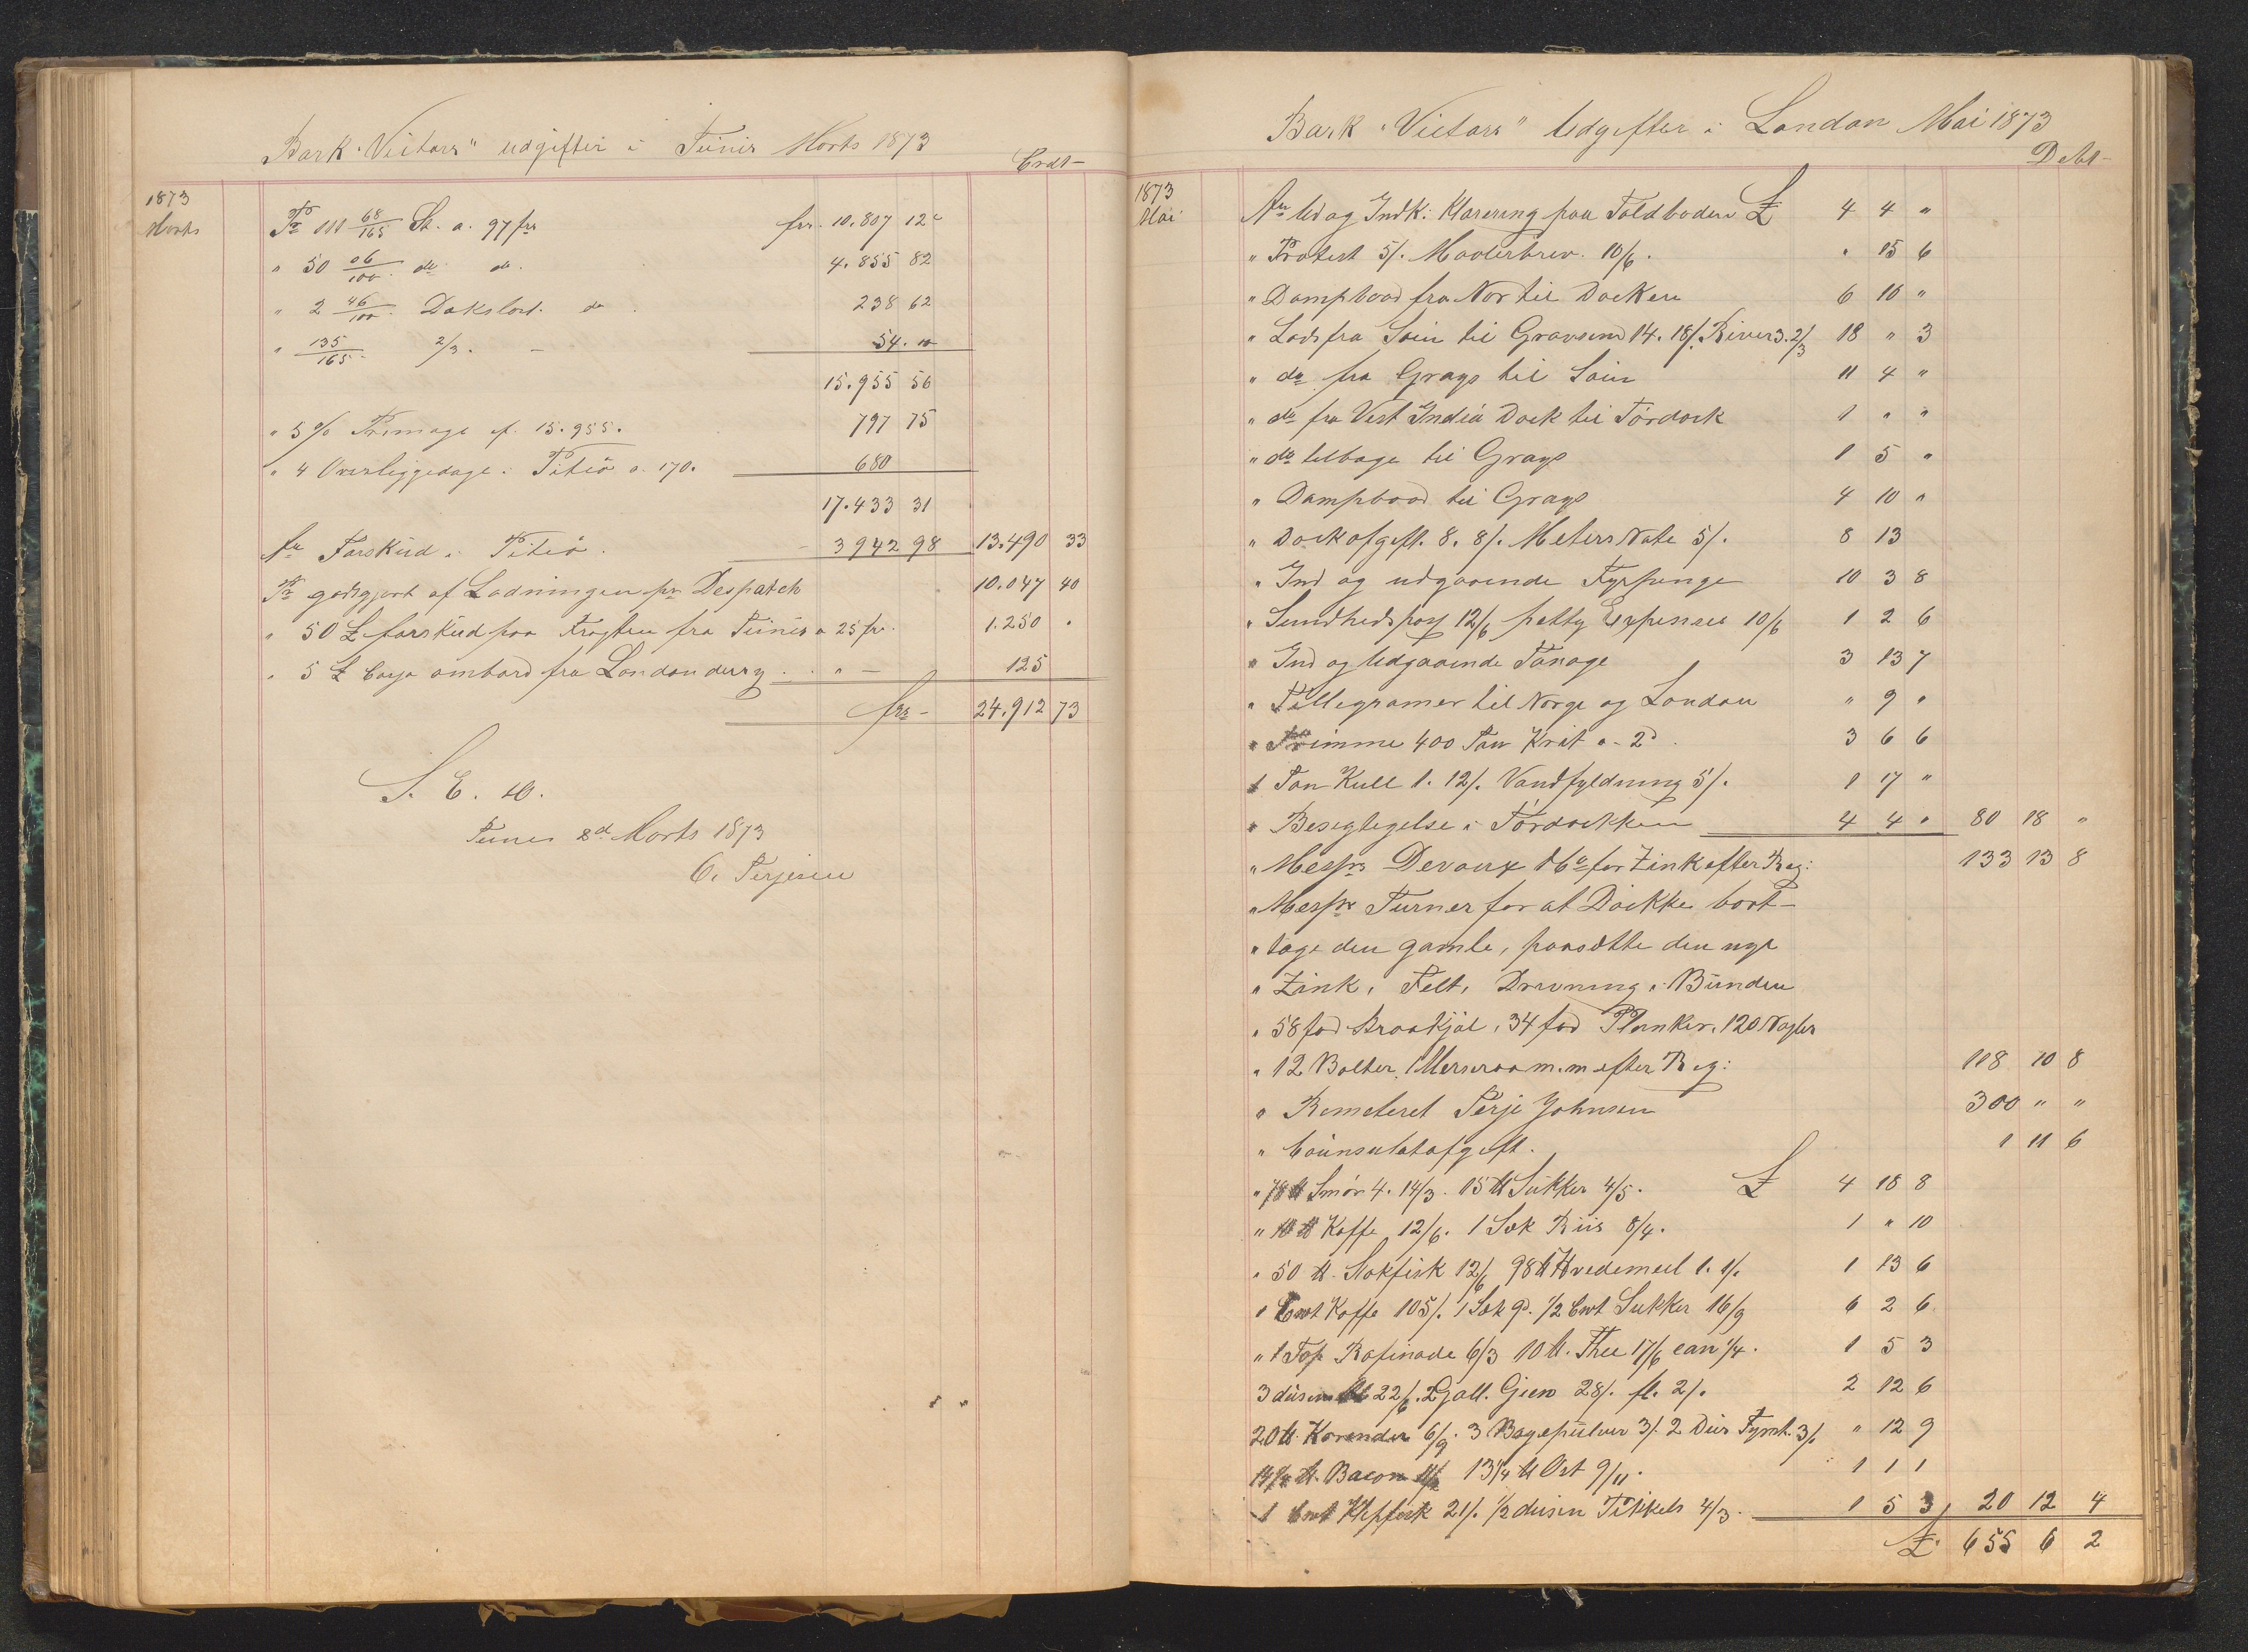 Bark "Victors" udgifter i Tunis Marts 1873
Credt
1873
Marts
Pr 111 68/165 St. a. 97 frs frs. 10.807 12c
" 50 06/100 do do. 4.855 82
" 2 46/100 Dakslast. do 238 62
" 135/165 2/3. - 54. 10
15.955 56
" 5 % Primage af. 15.955. 797 75
" 4 Overliggedage i Piteå a. 170. 680
17.433 31
An Forskud i Piteå. 3942 98 13.490 33
Pr godtgjort af Ladningen pr Despatch 10.047 40
" 50 £ forskud paa Fragten fra Tunis a 25 fr. 1.250 "
" 5 £ Casse ombord fra Londonderry . " - 125
frs - 24.912 73
S. E. &.
Tunis 8d Marts 1873
O. Terjesen
Bark "Victors" Udgifter i London Mai 1873
Debt
1873
Mai
An Ud og Indk: Klarering paa Toldboden £ 4 4 "
" Protest 5/. Maalerbrev. 10/6. " 15 6
" Dampbaad fra Nor til Docken 6 10 "
" Lods fra Soin til Gravsend 14. 18/. River 3.2/3 18 " 3
" do fra Grays til Soin 11 4 "
" do fra Vest India Dock til Tördock 1 " "
" do tilbage til Grays 1 5 "
" Dampbaad til Grays 4 10 "
" Dockafgift. 8. 8/. Meters Note 5/. 8 13
" Ind og udgaaende Fyrpenge 10 3 8
" Sundhedspas 12/6 petty Expenses 10/6 1 2 6
" Ind og Udgaaende Tonage 3 13 7
" Tellegramer til Norge og London " 9 "
" Trimme 400 Ton Krit a. 2d. 3 6 6
1 Ton Kull 1. 12/. Vandfyldning 5/. 1 17 "
" Besigtegelse i Tördockken 4 4 " 80 18 "
" Messrs Devaux & Co for Zink efter Reg: 133 13 8
" Messrs Turner for at Dockke bort-
" tage den gamle, paasætte den nye
" Zink, Felt, Drivning i Bunden
" 58 fod Straakjøl, 34 fod Planker, 120 Nagler
" 12 Bolter, 1 Mersraa m.m efter Reg: 118 10 8
" Remeteret Terje Johnsen 300 " "
" Counsulatafgift. 1 11 6
" 78 ℔ Smør 4. 14/3. 15 ℔ Sukker 4/5. £ 4 18 8
" 10 ℔ Kaffe 12/6. 1 Sæk Riis 8/4. 1 " 10
" 50 ℔. Stokfisk 12/6 98 ℔ Hvedemeel 1. 1/. 1 13 6
1 Cwt Kaffe 105/. 1 Sæk 9d. 1/2 Cwt Sukker 16/9 6 2 6
" 1 Top Rafinade 6/3 10 ℔. Thee 17/6 can 1/4. 1 5 3
3 dusin Øl 22/6. 2 Gall. Gien 28/. fl. 2/. 2 12 6
20 ℔. Korender 6/9. 3 Bagepulver 3/. 2 Dus Fyrst. 3/. " 12 9
℔. Bacon 13 1/4 ℔ Ost 9/11. 1 1 1
1 Cwt Klepfisk 21/. 1/2 dusin Pikkels 4/3. 1 5 3 20 12 4
£. 655 6 2